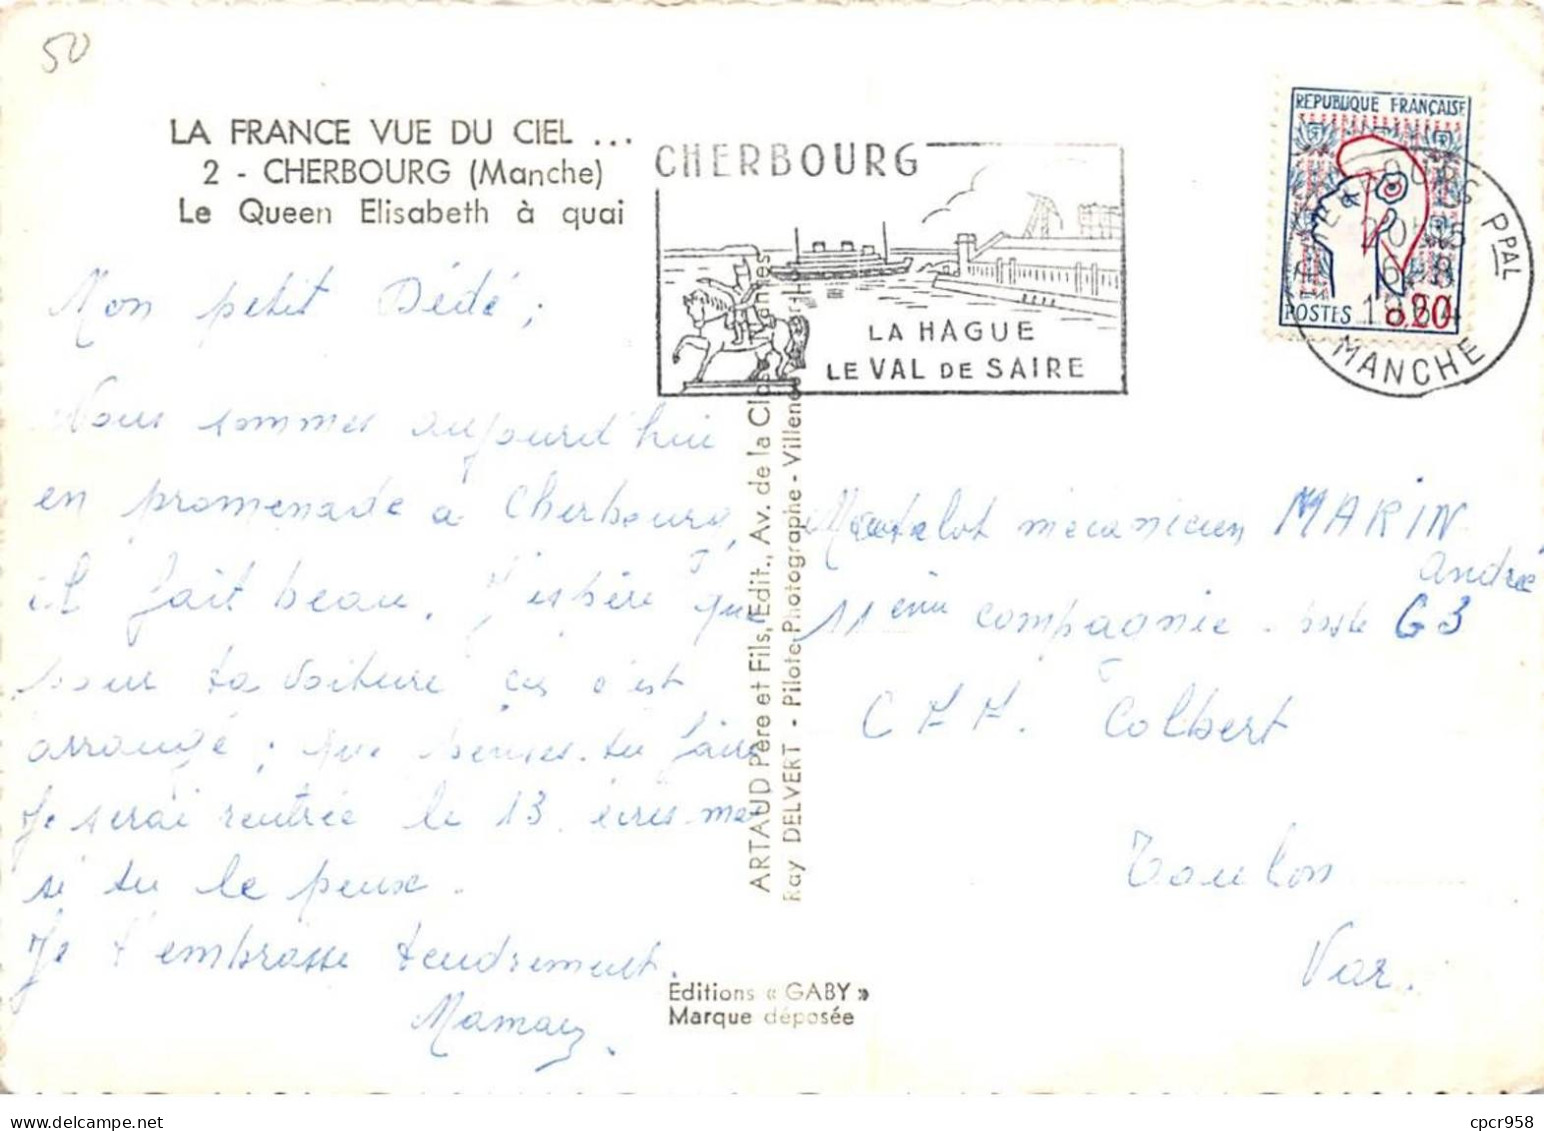 50
LA FRANCE VUE DU CIEL ...
2 - CHERBOURG (Manche)
Le Queen Elisabeth à quai
CHERBOURG
LA HAGUE
LE VAL DE SAIRE
REPUBLIQUE FRANÇAISE
POSTES 0.20
PPAL
MANCHE
Mon petit Dédé ;
Nous sommes aujourd'hui
en promenade a Cherbourg,
il fait beau. J'espère que
pour ta voiture c'est
arrangé ; que penses-tu faire
Je serai rentrée le 13. ecris-moi
si tu le peux.
Je t'embrasse tendrement.
Maman.
Matelot mécanicien MARIN
André
11 ème compagnie - poste G3
Colbert
Toulon
Var.
ARTAUD Père et Fils, Edit., Av. de la
Ray DELVERT - Pilote Photographe -
Editions « GABY »
Marque déposée
cpcr958